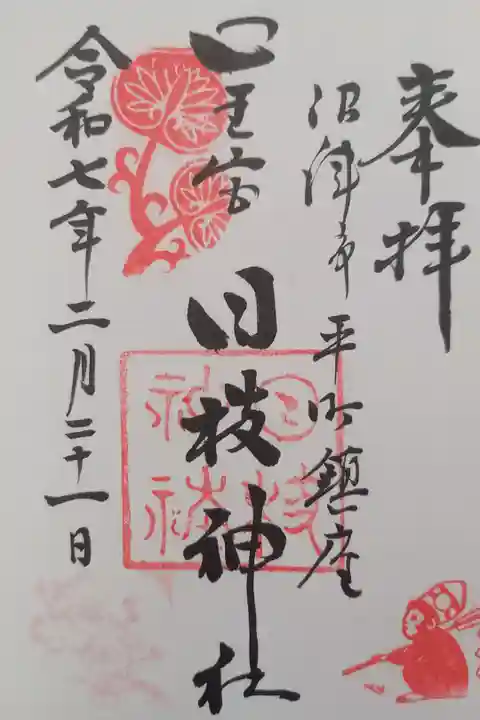 奉拝
沼津市平町鎮座
山王宮
日枝神社
令和七年二月二十一日
日枝
神社